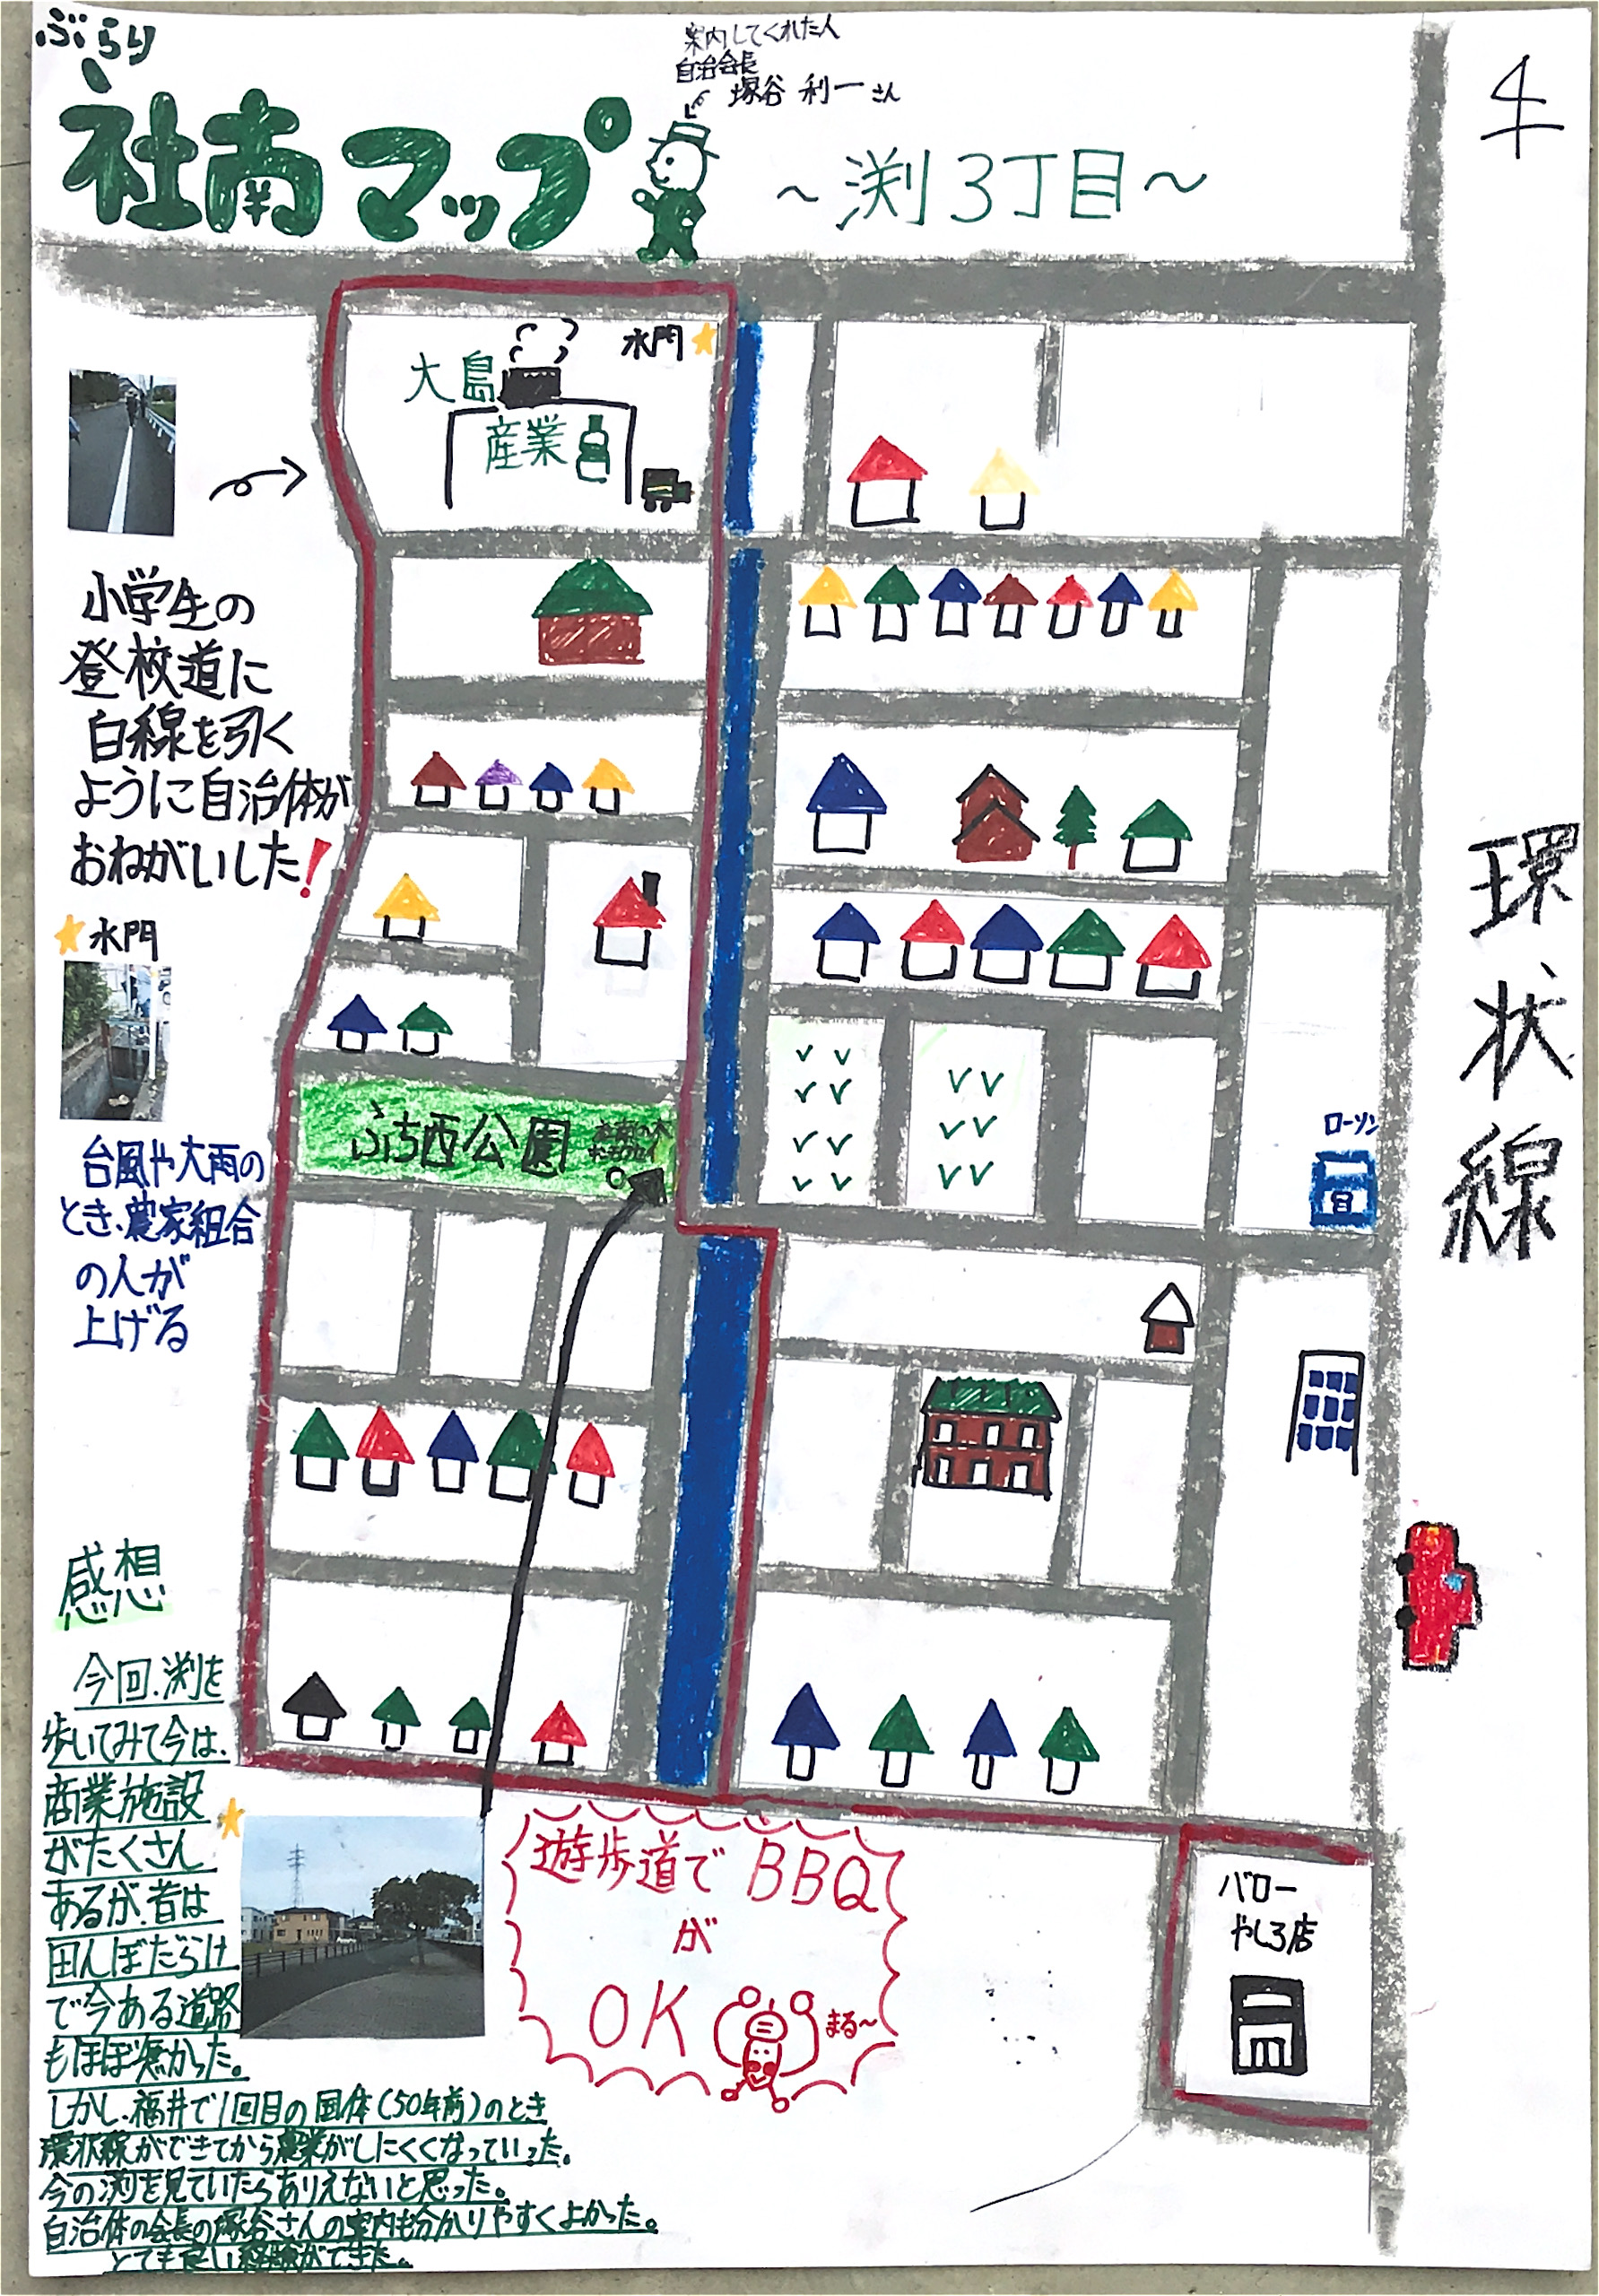 ぶらり
社南マップ
案内してくれた人
自治会長
塚谷 利一さん
～渕3丁目～
水門
大島
産業
小学生の
登校道に
白線を引く
ように自治体が
おねがいした!
水門
台風や大雨の
とき、農家組合
の人が
上げる
ふち西公園
ローソン
環状線
感想
今回、渕を
歩いてみて今は、
商業施設
がたくさん
あるが、昔は
田んぼだらけ
で今ある道路
もほぼ無かった。
しかし、福井で1回目の国体(50年前)のとき
環状線ができてから農業がしにくくなっていった。
今の渕を見ていたらありえないと思った。
自治体の会長の塚谷さんの案内も分かりやすくよかった。
とても良い経験ができた。
遊歩道でBBQ
が
OK
まる～
バロー
やしろ店